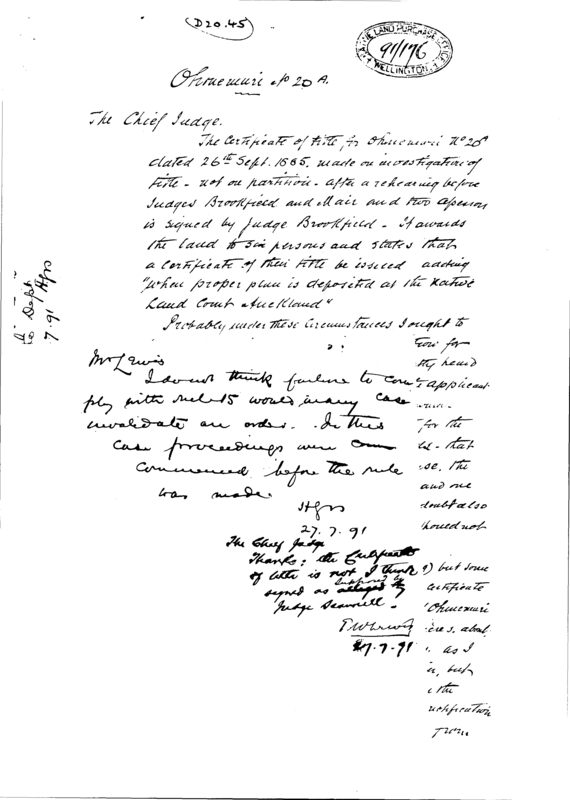 (D20.45)
NATIVE LAND PURCHASE OFFICE
91/176
WELLINGTON
Ohinemuri No 20 A.
The Chief Judge.
The Certificate of title for Ohinemuri No 20A
dated 26th Sept. 1885, made on investigation of
title - not on partition - after a rehearing before
Judges Brookfield and Mair and two assessors
is signed by Judge Brookfield - It awards
the land to six persons and states that
a certificate of their title be issued adding
"when proper plan is deposited at the Native
Land Court Auckland"
Probably under these circumstances I ought to
to Dept
7.91
Mr Lewis
I do not think failure to com
ply with rule 15 would in any case
invalidate an order. In this
case proceedings were
commenced before the rule
was made.
27.7.91
The Chief Judge
Thanks: the Certificate
of title is not I think
signed as supposed by
Judge Scannell.
T W Lewis
27.7.91
for
heard
applicant
for the
that
the
and one
doubt also
should not
but some
certificate
Ohinemuri
about
as I
but
the
notification
from